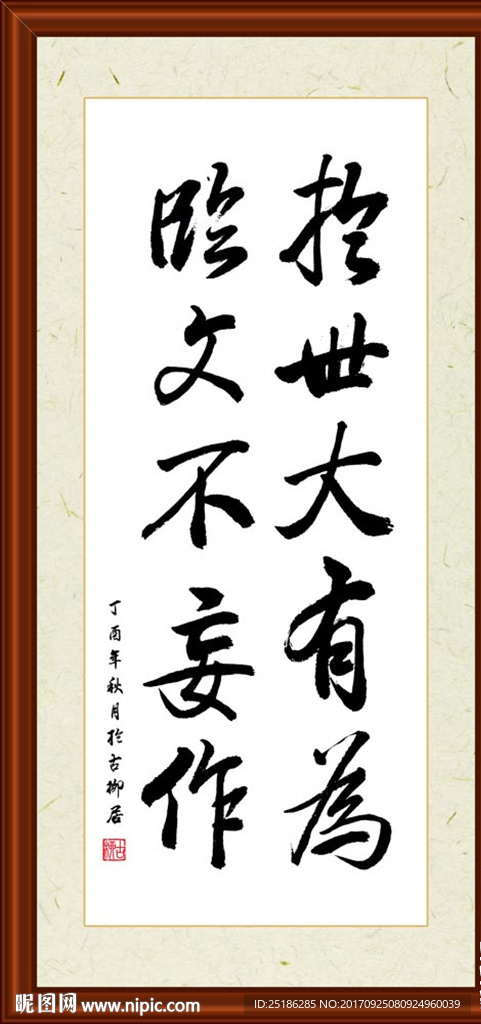 於世大有為
臨文不妄作
丁酉年秋月於古柳居
昵图网 www.nipic.com
ID:25186285 NO:20170925080924960039